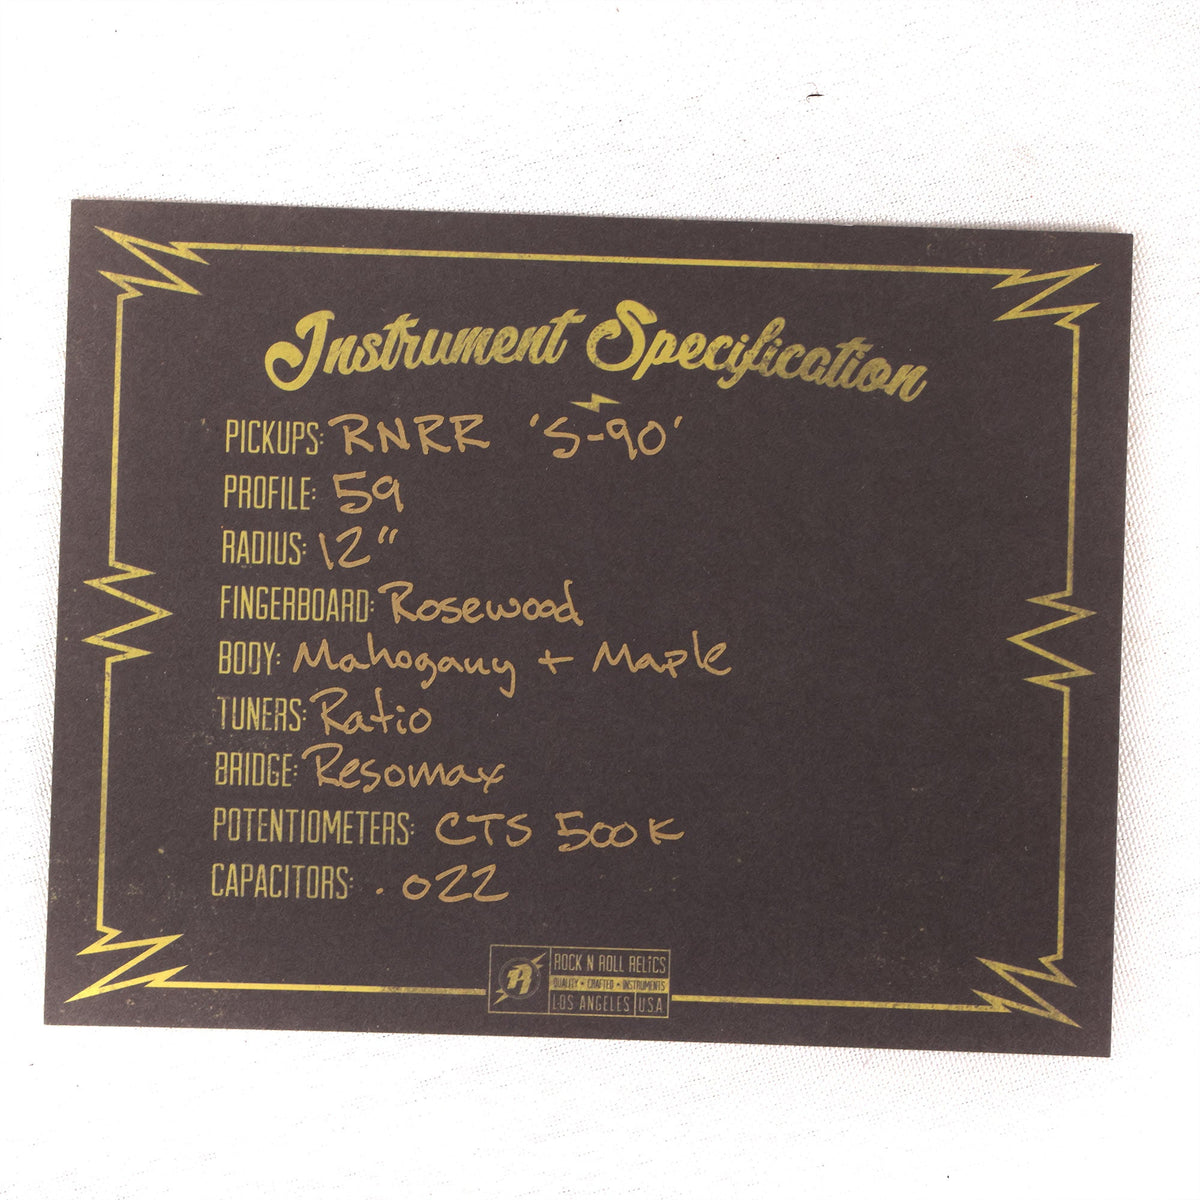 Instrument Specification
PICKUPS: RNRR 'S-90'
PROFILE: 59
RADIUS: 12"
FINGERBOARD: Rosewood
BODY: Mahogany + Maple
TUNERS: Ratio
BRIDGE: Resomax
POTENTIOMETERS: CTS 500K
CAPACITORS: .022
R
ROCK N ROLL RELICS
QUALITY • CRAFTED • INSTRUMENTS
LOS ANGELES U.S.A